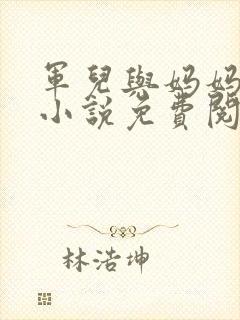 軍兒與媽媽
小說免費閱
林浩坤